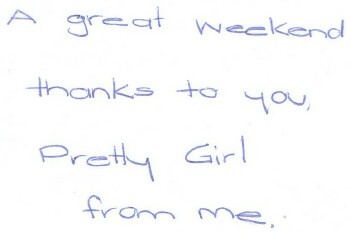 A great weekend
thanks to you,
Pretty Girl
from me.